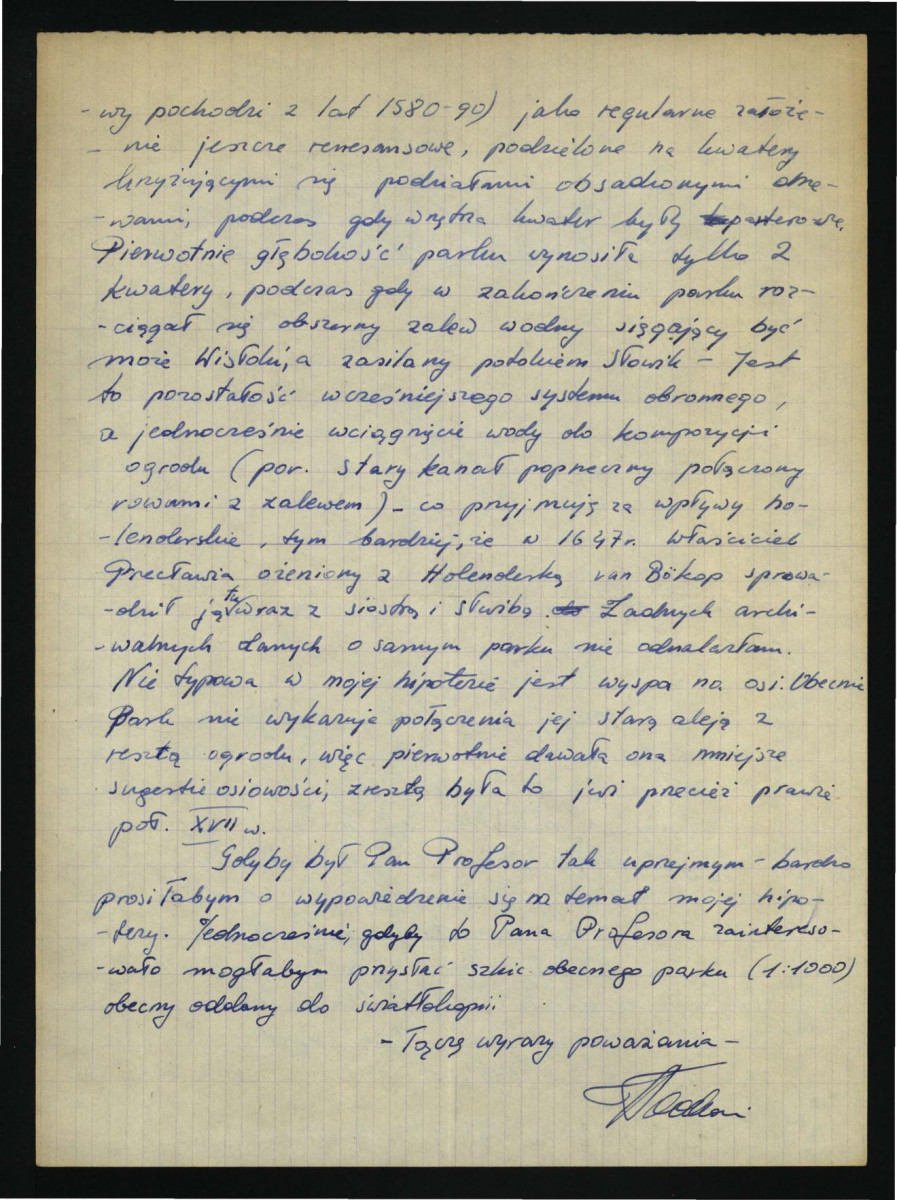 -wy pochodzi z lat 1580-90) jako regularne założe-
- nie jeszcze renesansowe, podzielone na kwatery
krzyżującymi się podziałami obsadzonymi drze-
-wami, podczas gdy wnętrza kwater były parterowe.
Pierwotnie głębokość parku wynosiła tylko 2
kwatery, podczas gdy w zakończeniu parku roz-
-ciągał się obszerny zalew wodny sięgający być
może Wisłoki, a zasilany potokiem Słowik - Jest
to pozostałość wcześniejszego systemu obronnego,
a jednocześnie wciągnięcie wody do kompozycji
ogrodu (por. stary kanał poprzeczny połączony
rowami z zalewem) - co przyjmuję za wpływy ho-
-lenderskie, tym bardziej, że w 1647 r. właściciel
Przecławia, ożeniony z Holenderką van Bökop sprowa-
-dził ją tu wraz z siostrą i służbą. Żadnych archi-
-walnych danych o samym parku nie odnalazłam.
Nie typowa w mojej hipotezie jest wyspa na osi. Obecnie
Park nie wykazuje połączenia jej starą aleją z
resztą ogrodu, więc pierwotnie dawała ona mniejsze
sugestie osiowości, zresztą była to już przecież prawie
poł. XVII w.
Gdyby był Pan Profesor tak uprzejmym - bardzo
prosiłabym o wypowiedzenie się na temat mojej hipo-
-tezy. Jednocześnie, gdyby to Pana Profesora zaintereso-
-wało mogłabym przysłać szkic obecnego parku (1:1000)
obecny oddany do światłokopii
- Łączę wyrazy poważania -